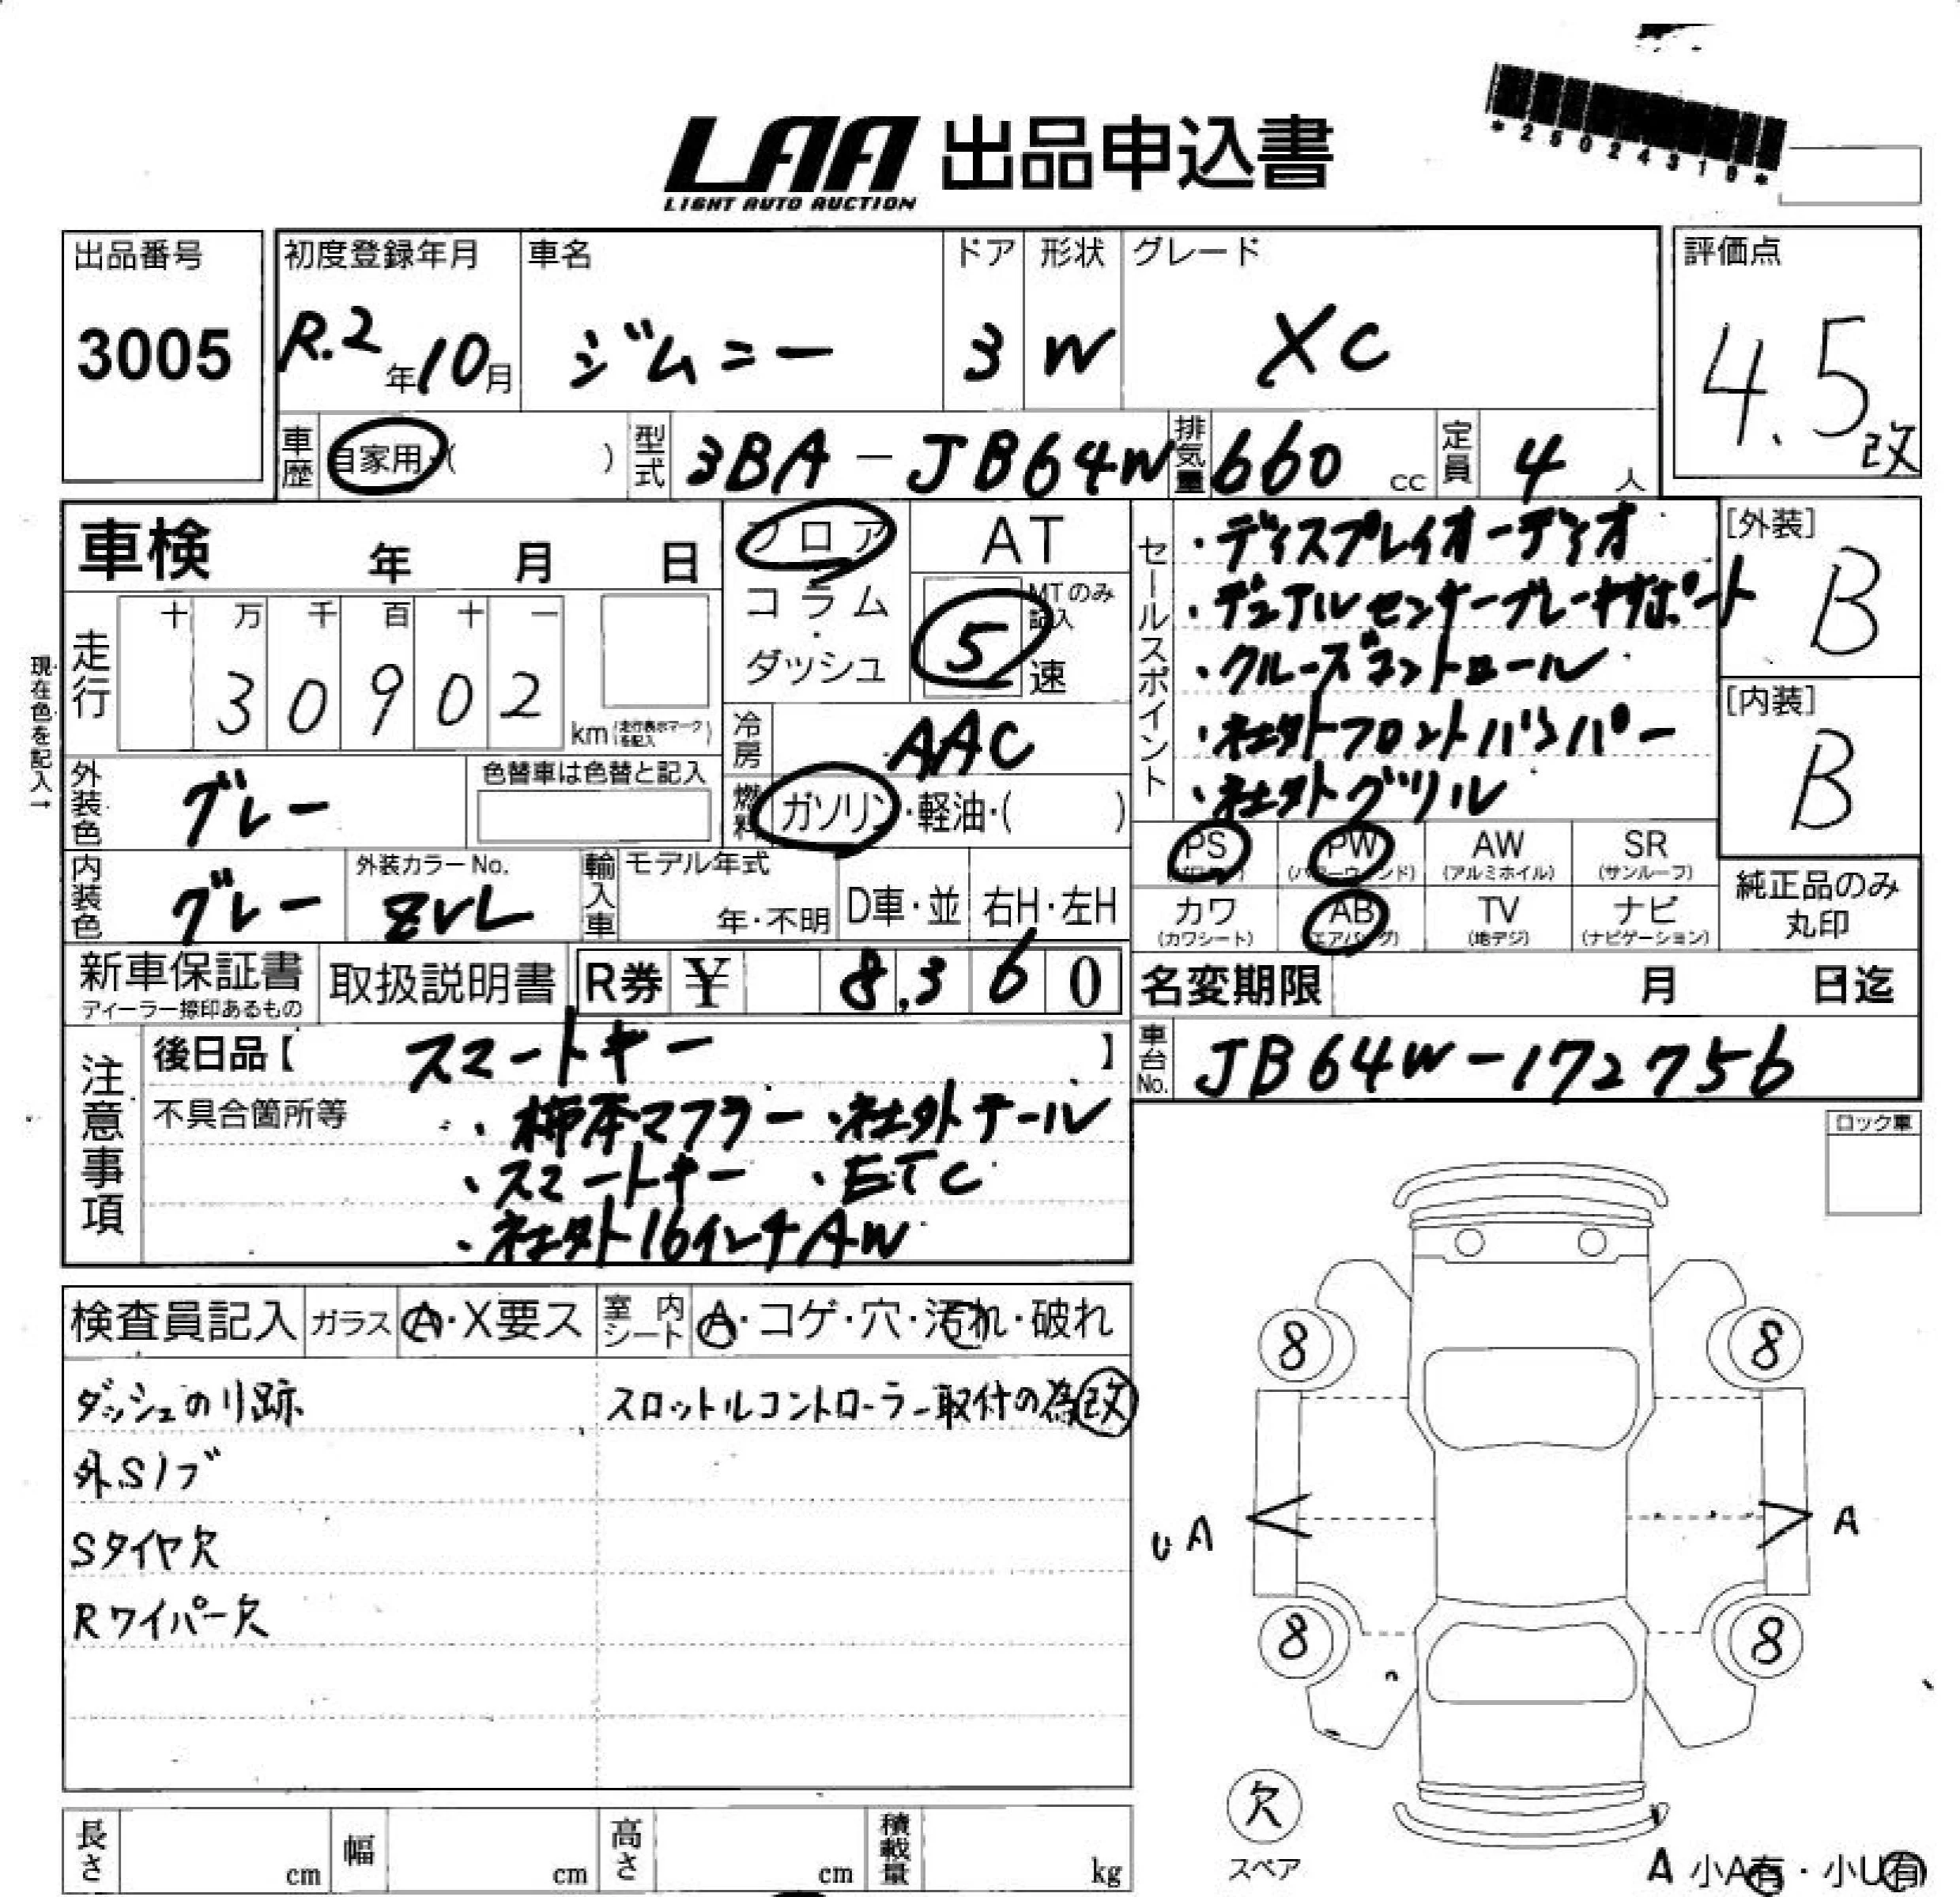 *25024310*
LAA 出品申込書
LIGHT AUTO AUCTION
出品番号
3005
初度登録年月
R.2年10月
車名
ジムニー
ドア
3
形状
W
グレード
XC
評価点
4.5改
車歴
自家用・( )
型式
3BA-JB64W
排気量
660 cc
定員
4 人
車検 年 月 日
フロア
コラム
・
ダッシュ
AT
MTのみ記入
5速
セールスポイント
・ディスプレイオーディオ
・デュアルセンサーブレーキサポート
・クルーズコントロール
・社外フロントバンパー
・社外グリル
[外装]
B
[内装]
B
現在色を記入→
走行
十 万 千 百 十 一
3 0 9 0 2
km (走行表示マークを記入)
冷房
AAC
燃料
ガソリン・軽油・( )
外装色
グレー
色替車は色替と記入
内装色
グレー
外装カラーNo.
ZVL
輸入車
モデル年式
年・不明
D車・並
右H・左H
PS
PW
(パワーウィンド)
AW
(アルミホイル)
SR
(サンルーフ)
カワ
(カワシート)
AB
(エアバッグ)
TV
(地デジ)
ナビ
(ナビゲーション)
純正品のみ
丸印
新車保証書
ディーラー捺印あるもの
取扱説明書
R券 ¥ 8,360
名変期限 月 日迄
車台No.
JB64W-172756
注意事項
後日品【 スマートキー 】
不具合箇所等
・柿本マフラー ・社外テール
・スマートキー ・ETC
・社外16インチAW
ロック車
検査員記入
ガラス
A・X要ス
室内シート
A・コゲ・穴・汚れ・破れ
ダッシュのり跡
スロットルコントローラー取付の為改
外Sノブ
Sタイヤ欠
Rワイパー欠
8
8
UA
A
8
8
欠
スペア
長さ cm
幅 cm
高さ cm
積載量 kg
A 小A有・小U有